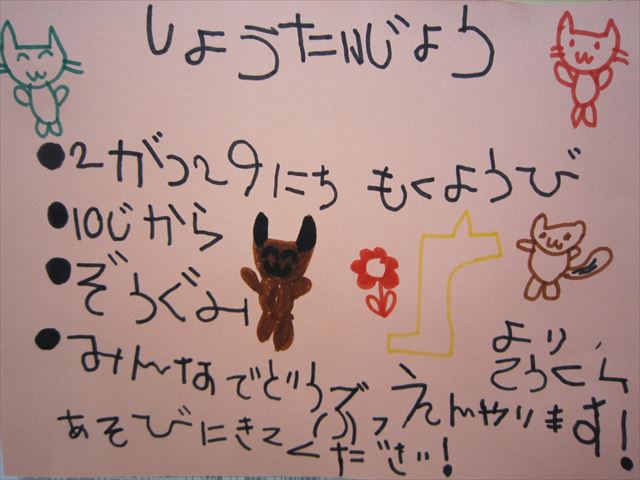 しょうたいじょう
●2がつ29にち もくようび
●10じから
●ぞうぐみ
●みんなでどうぶつえんやります!
あそびにきてください!
より